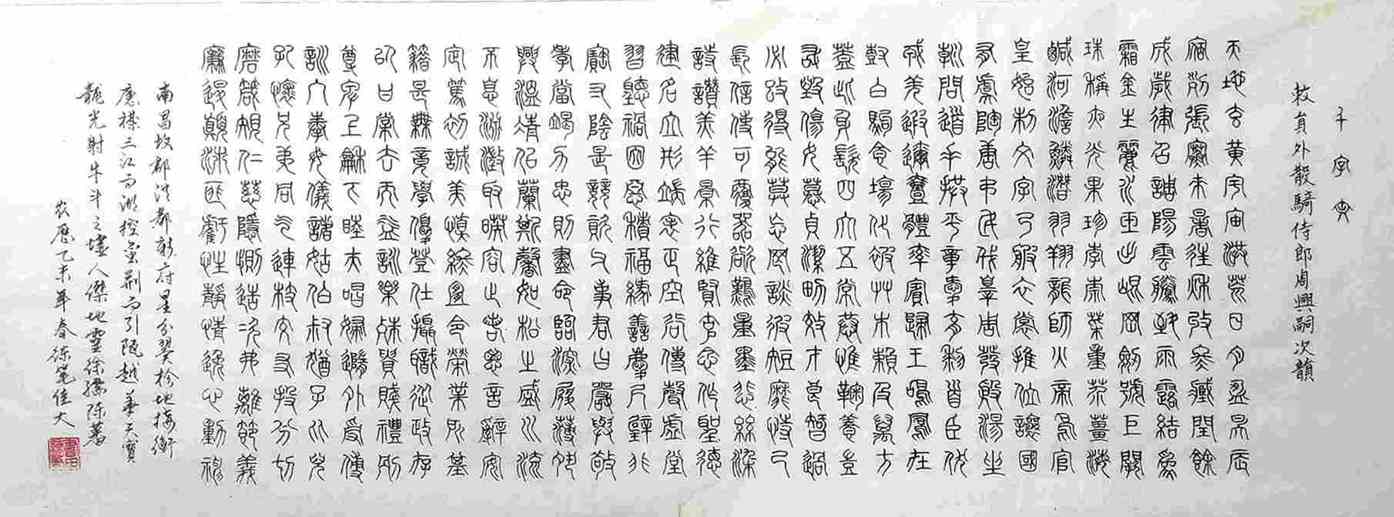 千字文
敕員外散騎侍郎周興嗣次韻
天地玄黃宇宙洪荒日月盈昃辰
宿列張寒來暑往秋收冬藏閏餘
成歲律呂調陽雲騰致雨露結為
霜金生麗水玉出崐岡劍號巨闕
珠稱夜光果珍李柰菜重芥薑海
鹹河澹鱗潛羽翔龍師火帝鳥官
皇始制文字乃服衣裳推位讓國
有虞陶唐弔民伐罪周發殷湯坐
朝問道垂拱平章愛育黎首臣伏
戎羌遐邇壹體率賓歸王鳴鳳在
樹白駒食場化被草木賴及萬方
蓋此身髮四大五常恭惟鞠養豈
敢毀傷女慕貞潔男效才良知過
必改得能莫忘罔談彼短靡恃己
長信使可覆器欲難量墨悲絲染
詩讚羔羊景行維賢克念作聖德
建名立形端表正空谷傳聲虛堂
習聽禍因惡積福緣善慶尺璧非
寶寸陰是競資父事君曰嚴與敬
孝當竭力忠則盡命臨深履薄夙
興溫凊似蘭斯馨如松之盛川流
不息淵澄取映容止若思言辭安
定篤初誠美慎終宜令榮業所基
籍甚無竟學優登仕攝職從政存
以甘棠去而益詠樂殊貴賤禮別
尊卑上和下睦夫唱婦隨外受傅
訓入奉母儀諸姑伯叔猶子比兒
孔懷兄弟同氣連枝交友投分切
磨箴規仁慈隱惻造次弗離節義
廉退顛沛匪虧性靜情逸心動神
南昌故郡洪都新府星分翼軫地接衡
廬襟三江而湖控蠻荊而引甌越華天寶
龍光射牛斗之墟人傑地靈徐孺陳蕃
農歷乙未年春徐